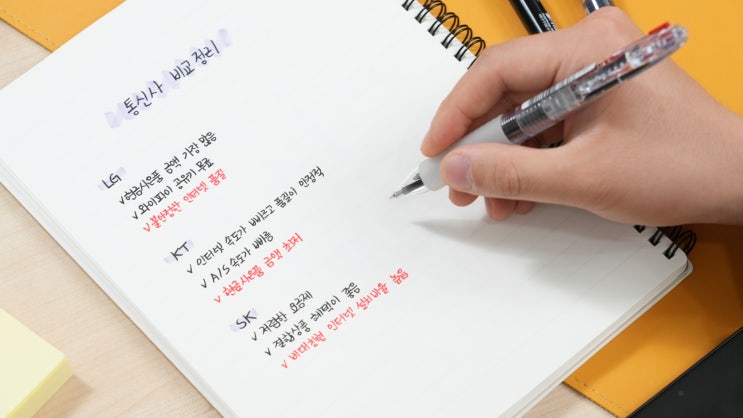 통신사 비교 정리
LG
v 현금사은품 금액 가장 많음
v 와이파이 공유기 무료
v 불안정한 인터넷 품질
KT
v 인터넷 속도가 빠르고 품질이 안정적
v A/S 속도가 빠름
v 현금사은품 금액 최저
SK
v 저렴한 요금제
v 결합상품 혜택이 좋음
v 비대칭형 인터넷 설치비율 높음